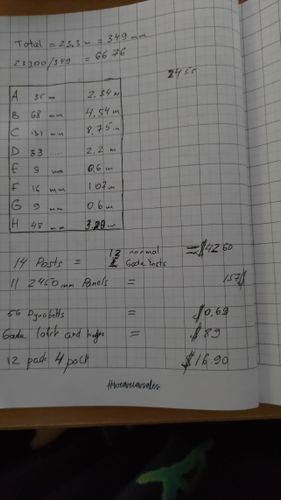 Total = 23.3 m = 349 mm
23300/349 = 66.76
2455
A 35 mm 2.34 m
B 68 mm 4.54 m
C 131 mm 8.75 m
D 33 2.2 m
E 9 mm 0.6 m
F 16 mm 1.07 m
G 9 mm 0.6 m
H 48 mm
14 Posts = 13 normal = $42.60
11 2450 mm Panels = 157$
56 Dynabolts = $0.69
Gate latch and hinges = $89
12 pack 4 pack $16.90